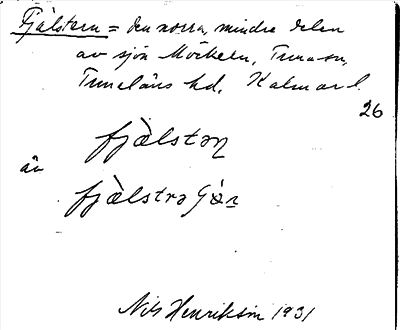 Fjälstern = den norra, mindre delen
av sjön Möckeln, Tuna sn,
Tunaläns hd. Kalmar l.
26
fjä̀lstəη
än
fjä̀lstrə
Nils Henrikson 1931